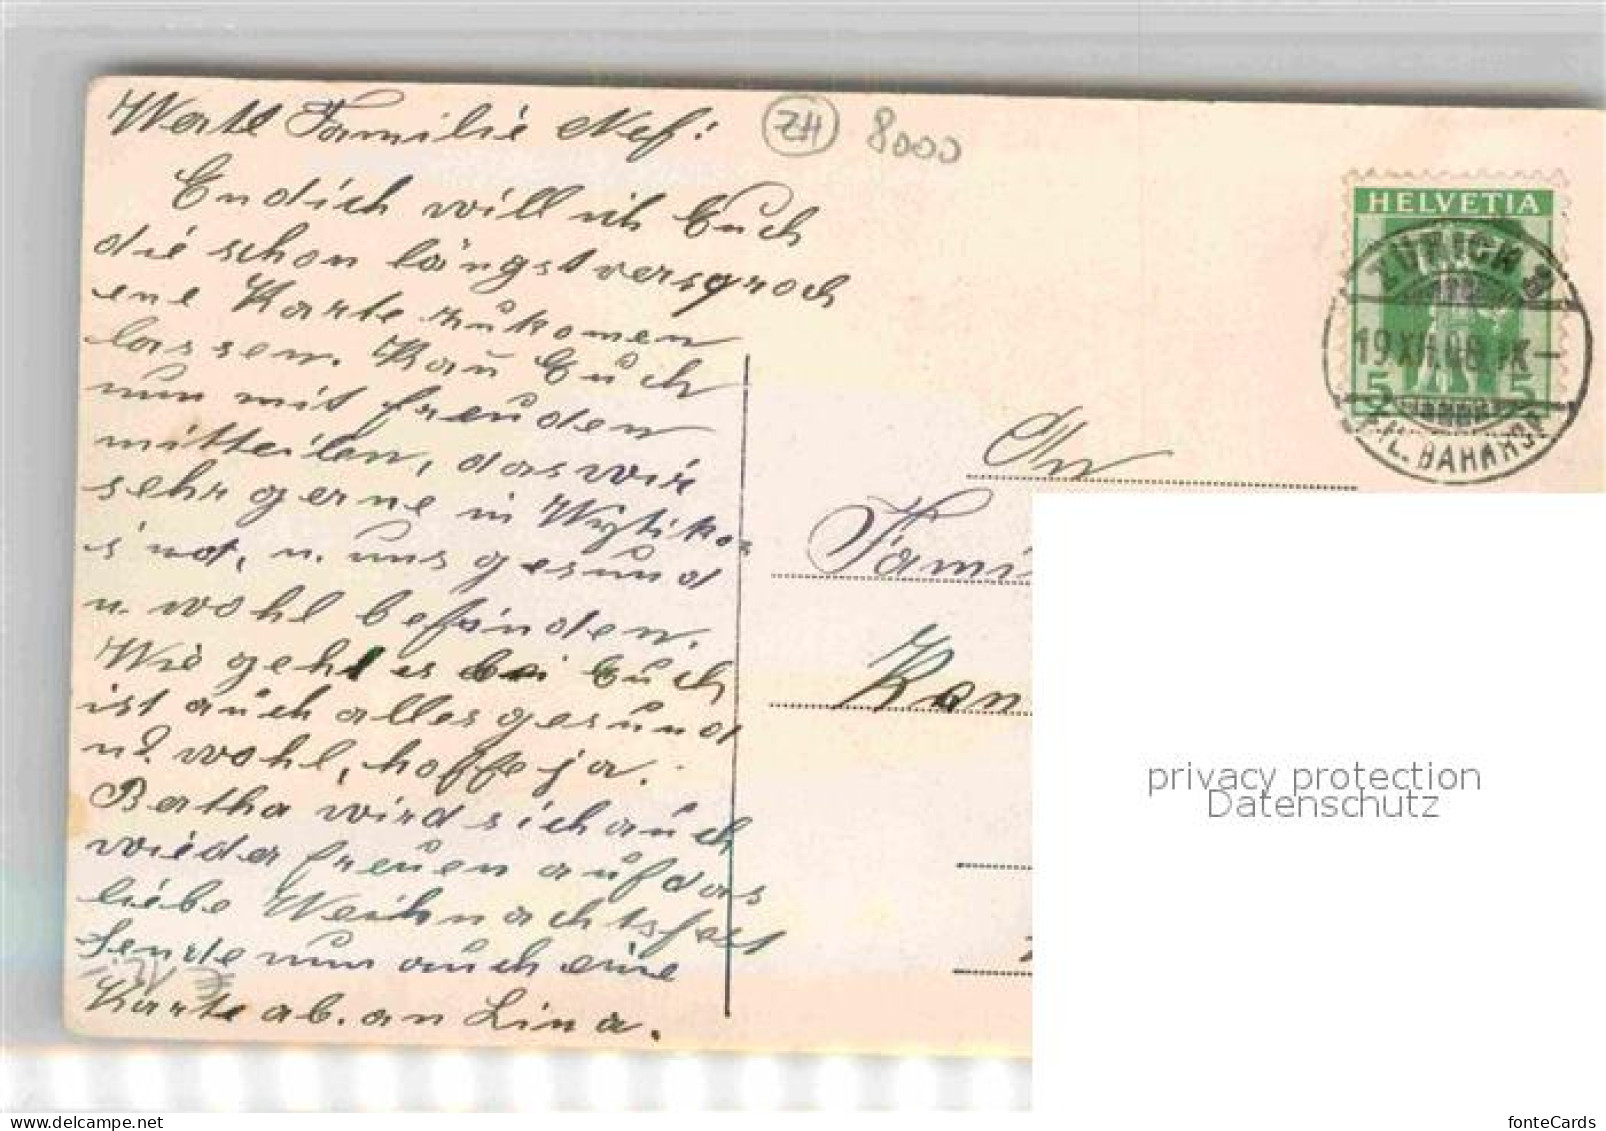 Werte Familie Nef!
ZH 8000
Endich will ich Euch
die schon längst versproch
ene Karte zukomen
lassen. Kan Euch
nun mit freuden
mitteilen, das wir
sehr gerne in Wytikon
sind, u. uns gesund
u. wohl befinden.
Wie geht es bei Euch
ist auch alles gesund
und wohl, hoffe ja.
Bertha wird sich auch
wieder freuen auf das
liebe Weihnachtsfest
sende nun auch eine
Karte ab. an Lina.
HELVETIA
ZÜRICH
19.XII.08. IX–
5 5
FIL. BAHNHOF
An
Fami
Kon
privacy protection
Datenschutz
fonteCards